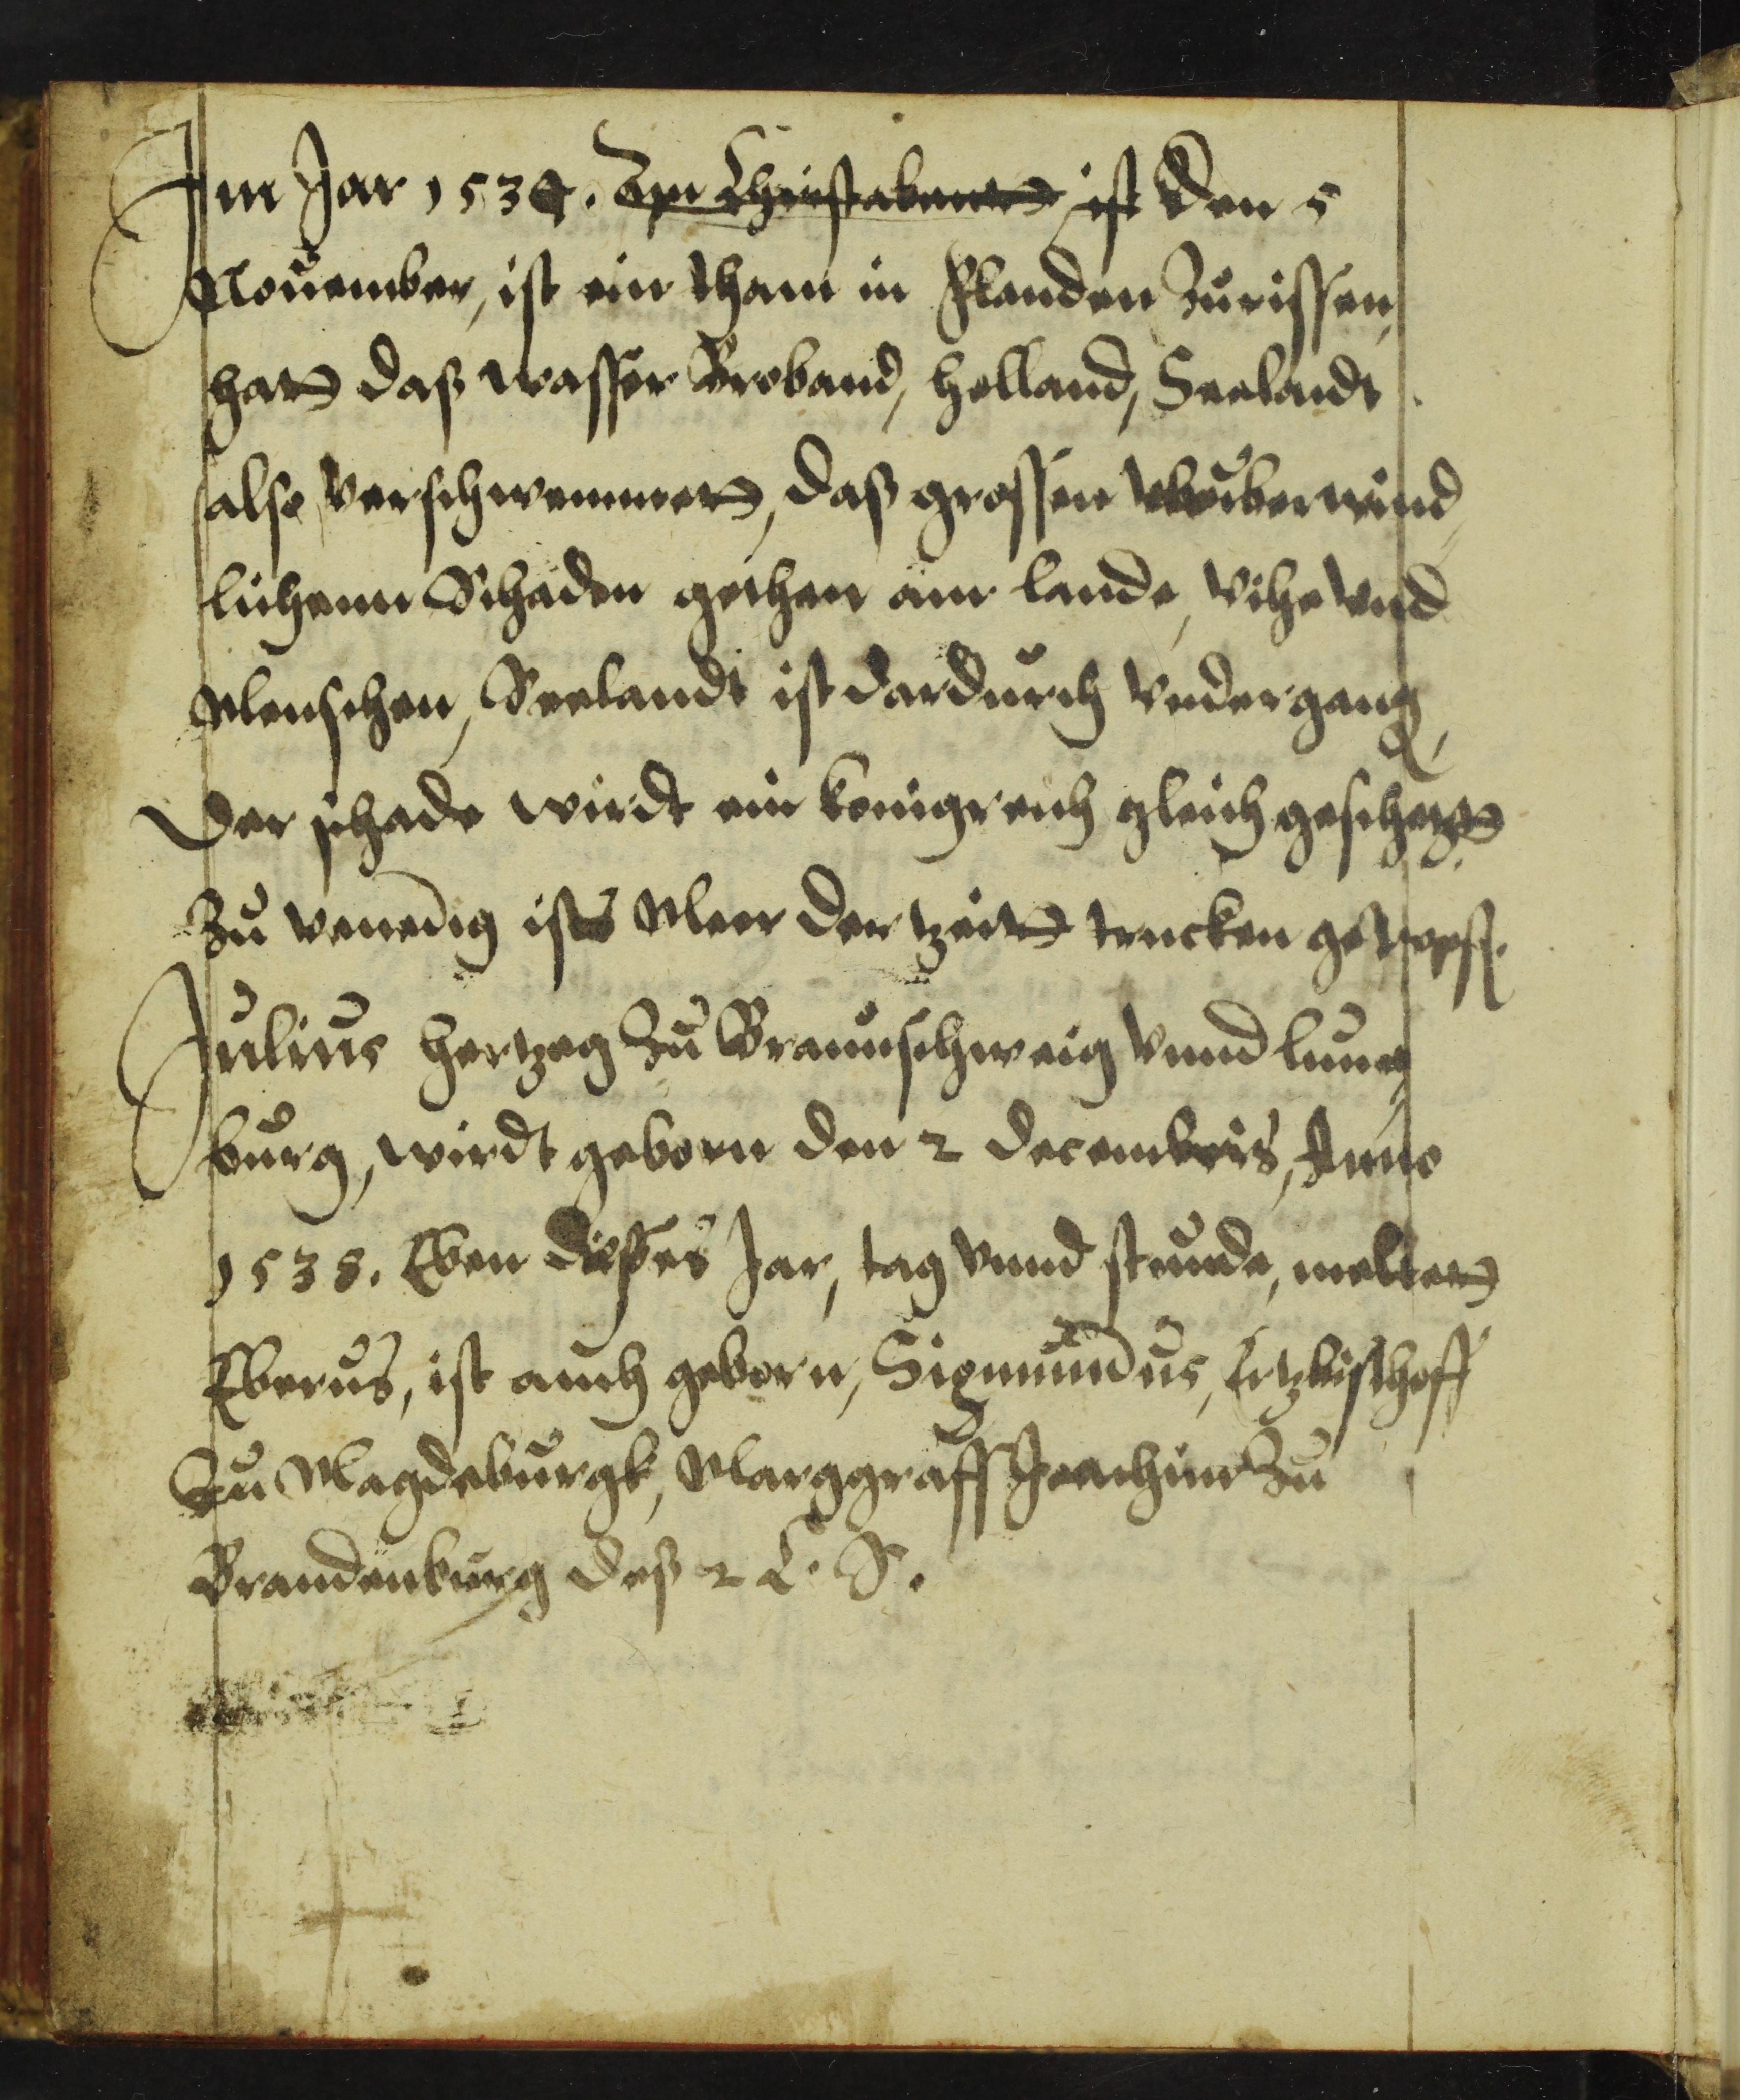 Im Jar 1534. Am Christabent ist den 5
Nouember, ist ein tham in Flanden zurissen,
hatt daß wasser Broband, Holland, Seelandt
also verschwemmett, daß grossen vnuberwind
lichenn Schaden gethan am lande, vihe vnd
Menschen, Seelandt ist dardurch vndergang,
Der schade wirdt ein konigreich gleich geschetzt
zu venedig ists Meer der tzeitt trucken gewess.
Julius Hertzog zu Braunschweig vnnd lune
burg, wirdt geborn den 2 Decembris, Anno
1538. Eben disses Jar, tag vnnd stunde, meltett
Eberus, ist auch geborn, Sigmundus, Ertzbischoff
zu Magdeburgk, Marggraff Joachim zu
Brandenburg deß 2 C. S.